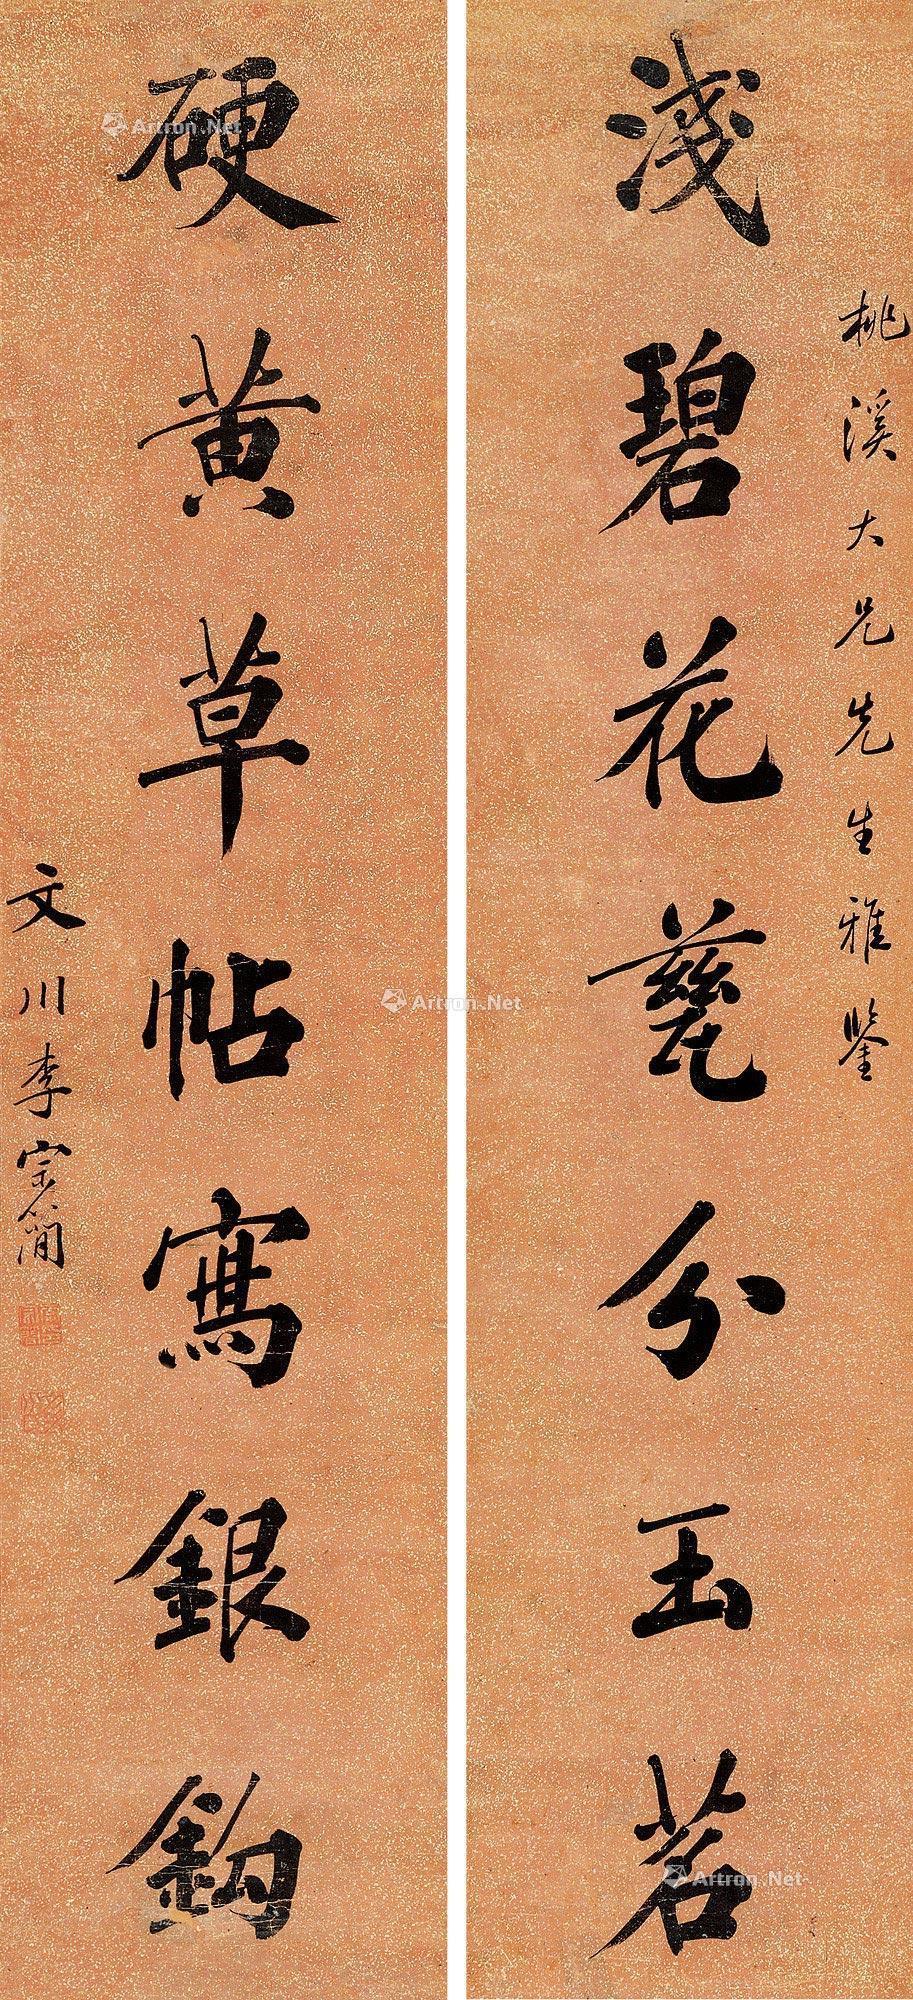 桃溪大兄先生雅鑒
淺碧花甆分玉茗
硬黃草帖寫銀鉤
文川李宗簡
Artron.Net
Artron.Net
Artron.Net